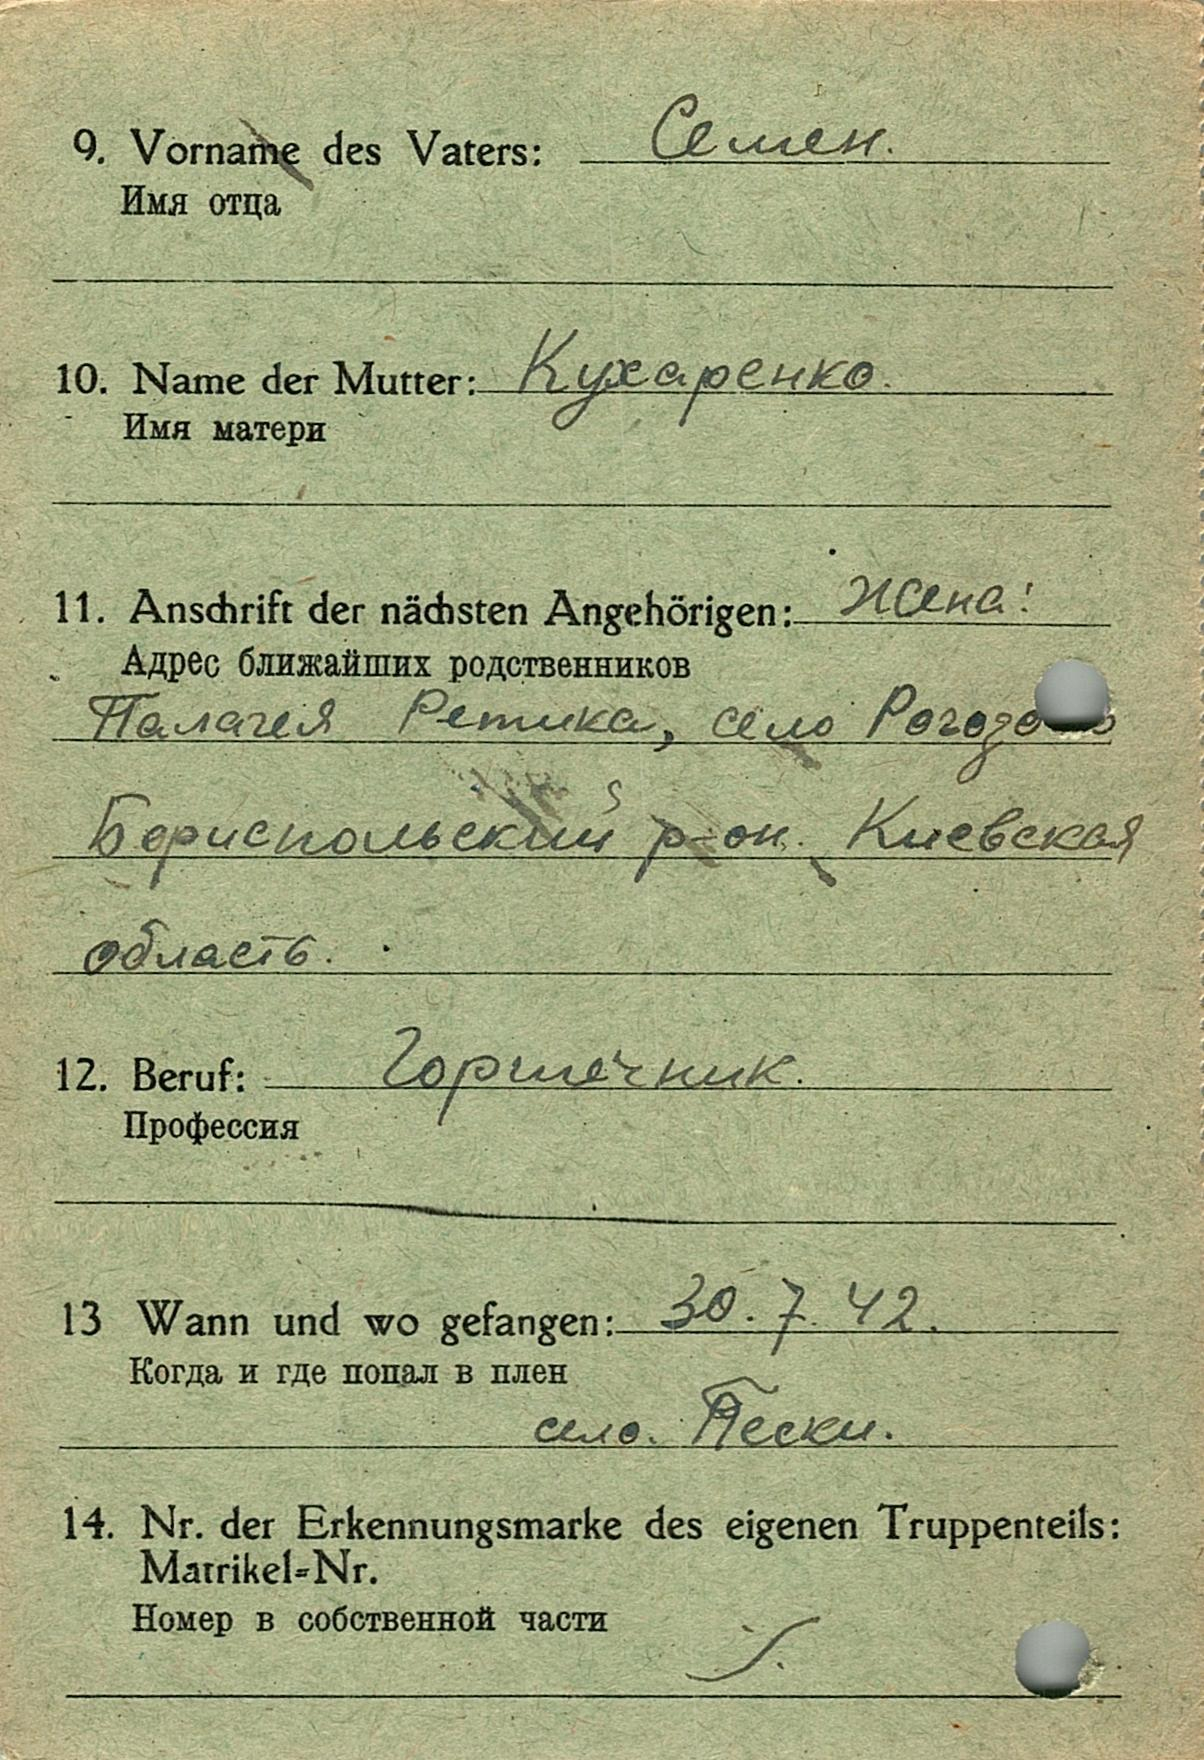 9. Vorname des Vaters: Семен.
Имя отца
10. Name der Mutter: Кухаренко.
Имя матери
11. Anschrift der nächsten Angehörigen: Жена:
Адрес ближайших родственников
Палагея Ретика, село
Бориспольский р-он. Киевская
область.
12. Beruf: Горшечник.
Профессия
13 Wann und wo gefangen: 30.7.42.
Когда и где попал в плен
село. Пески.
14. Nr. der Erkennungsmarke des eigenen Truppenteils:
Matrikel=Nr.
Номер в собственной части